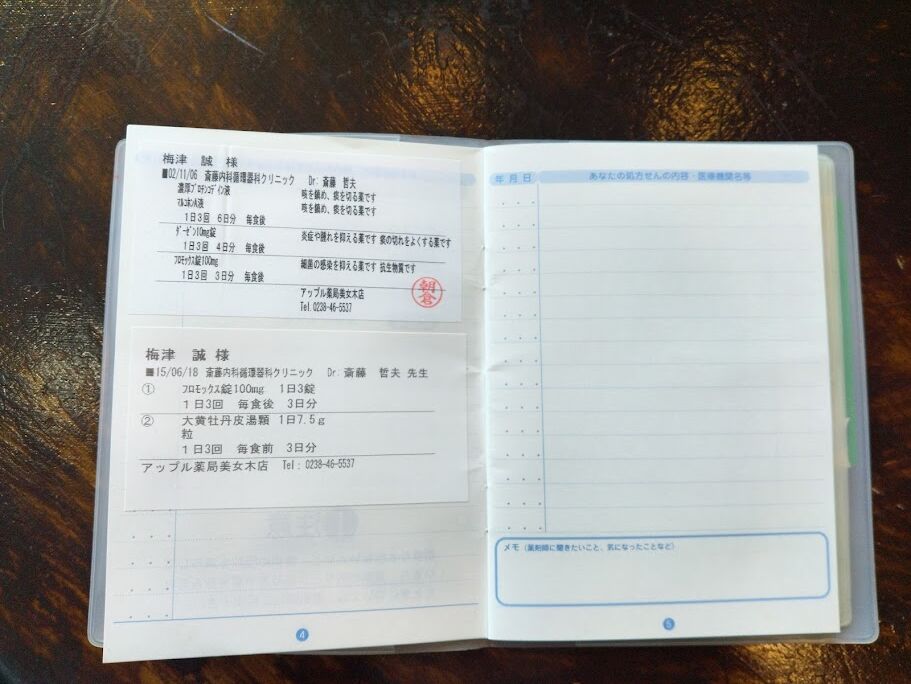 梅津　誠 様
■02/11/06 斎藤内科循環器科クリニック Dr: 斎藤 哲夫
濃厚ブロチンコデイン液 咳を鎮め、痰を切る薬です
マルコホンA液 咳を鎮め、痰を切る薬です
1日3回 6日分 毎食後
ダーゼン10mg錠 炎症や腫れを抑える薬です 痰の切れをよくする薬です
1日3回 4日分 毎食後
フロモックス錠100mg 細菌の感染を抑える薬です 抗生物質です
1日3回 3日分 毎食後
アップル薬局美女木店
Tel.0238-46-5537
朝倉
梅津　誠 様
■15/06/18 斎藤内科循環器科クリニック Dr: 斎藤　哲夫 先生
① フロモックス錠100mg 1日3錠
1日3回 毎食後 3日分
② 大黄牡丹皮湯顆 1日7.5g
粒
1日3回 毎食前 3日分
アップル薬局美女木店 Tel: 0238-46-5537
4
年 月 日 あなたの処方せんの内容・医療機関名等
メモ (薬剤師に聞きたいこと、気になったことなど)
5